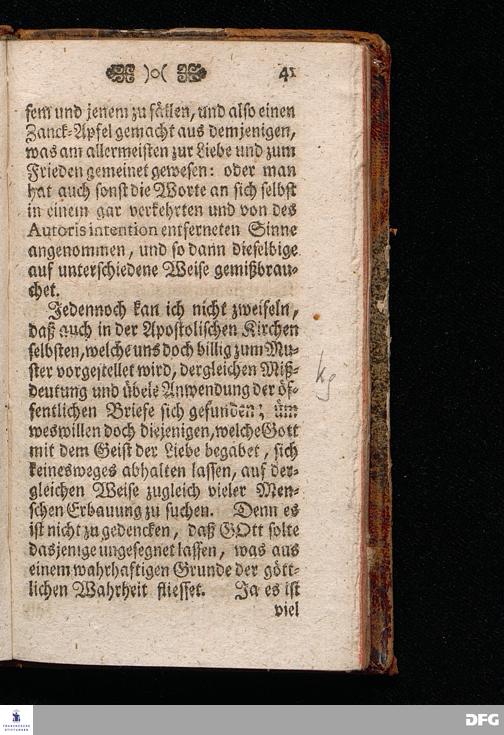 )o( 41
sem und jenem zu fällen, und also einen
Zanck-Apfel gemacht aus demjenigen,
was am allermeisten zur Liebe und zum
Frieden gemeinet gewesen: oder man
hat auch sonst die Worte an sich selbst
in einem gar verkehrten und von des
Autoris intention entferneten Sinne
angenommen, und so dann dieselbige
auf unterschiedene Weise gemißbrau-
chet.
Jedennoch kan ich nicht zweifeln,
daß auch in der Apostolischen Kirchen
selbsten, welche uns doch billig zum Mu-
ster vorgestellet wird, dergleichen Miß-
deutung und übele Anwendung der öf-
fentlichen Briefe sich gefunden; üm
weswillen doch diejenigen, welche Gott
mit dem Geist der Liebe begabet, sich
keinesweges abhalten lassen, auf der-
gleichen Weise zugleich vieler Men-
schen Erbauung zu suchen. Denn es
ist nicht zu gedencken, daß GOtt solte
dasjenige ungesegnet lassen, was aus
einem wahrhaftigen Grunde der gött-
lichen Wahrheit fliesset. Ja es ist
viel
FRANCKESCHE
STIFTUNGEN
DFG